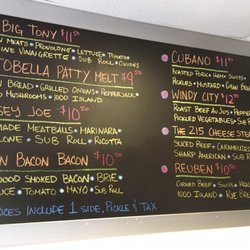 BIG TONY $11.50
MEATS • PROVOLONE • LETTUCE • TOMATO
VINAIGRETTE • SUB ROLL • ONIONS
TOBELLA PATTY MELT $9.50
BREAD • GRILLED ONIONS • PEPPERJACK
MUSHROOMS • 1000 ISLAND
EY JOE $10.50
MADE MEATBALLS • MARINARA
LONE • SUB ROLL • RICOTTA
N BACON BACON $10.50
WOOD SMOKED BACON • BRIE
UCE • TOMATO • MAYO • SUB ROLL
ICES INCLUDE 1 SIDE, PICKLE & TAX
CUBANO $11.50
ROASTED PORK • HAM • SWISS
PICKLES • MUSTARD •
WINDY CITY $12
ROAST BEEF • AU JUS • PEPPERS
PICKLED VEGETABLES • SUB
THE 215 CHEESE STE
SLICED BEEF • CARAMELIZED
SHARP AMERICAN • SUB
REUBEN $10.50
CORNED BEEF • SWISS •
1000 ISLAND • RYE BRE